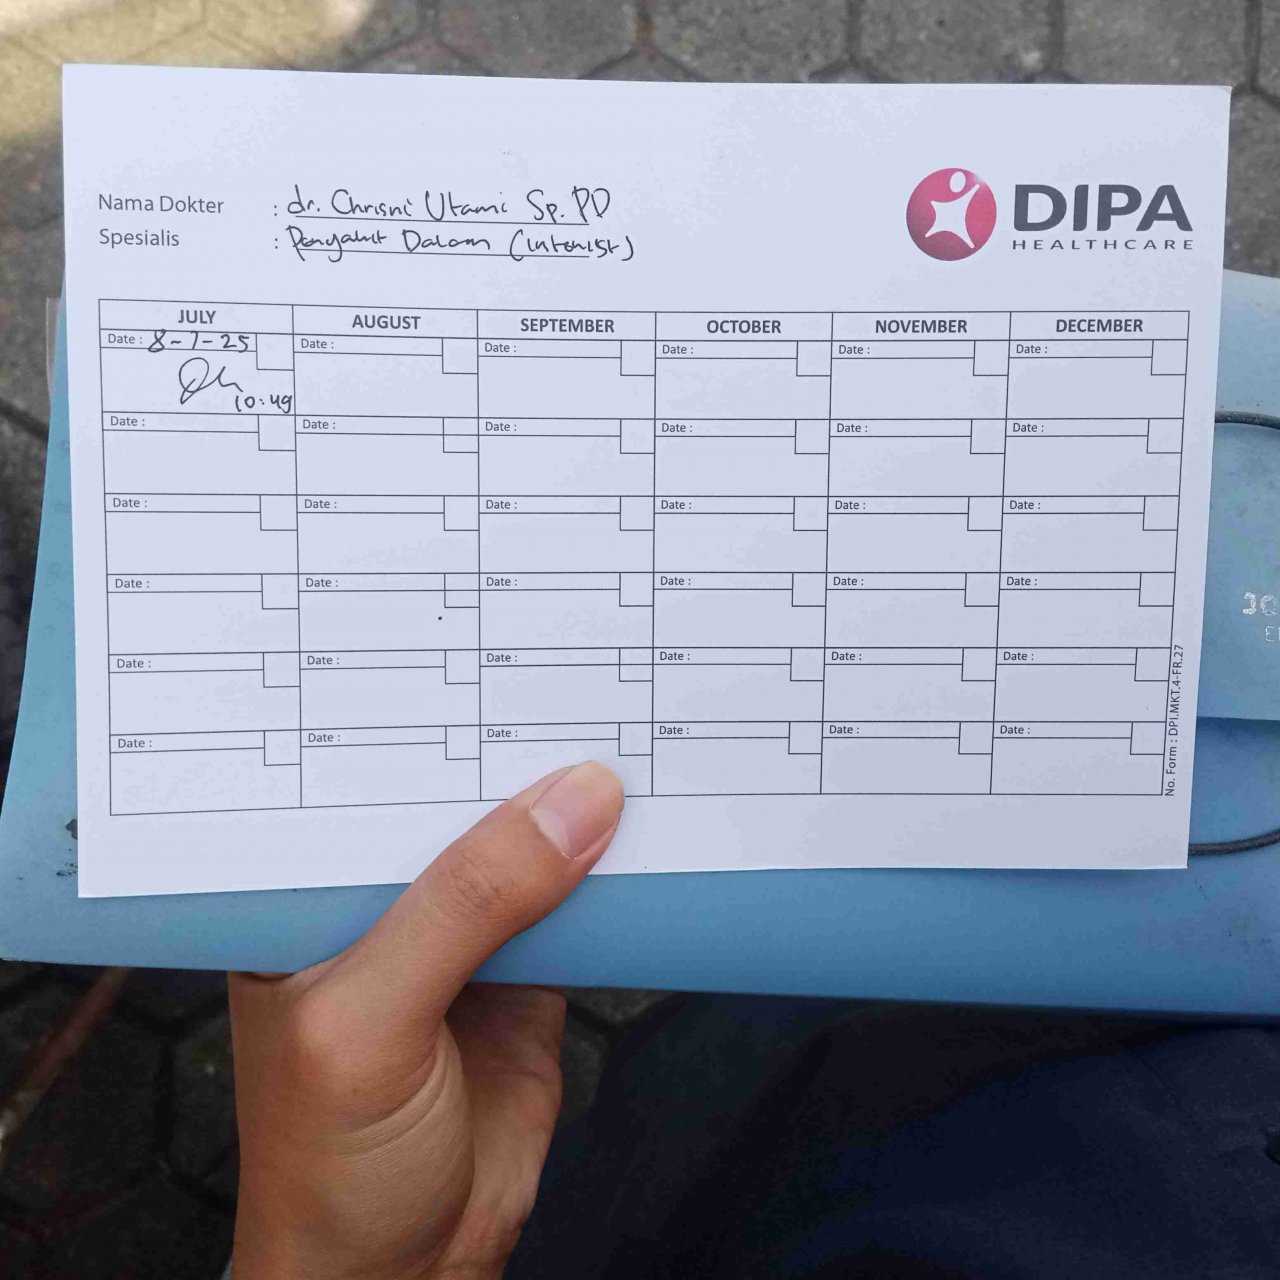 Nama Dokter : dr. Chrisni Utami Sp. PD
Spesialis : Penyakit Dalam (internist)
DIPA
HEALTHCARE
JULY AUGUST SEPTEMBER OCTOBER NOVEMBER DECEMBER
Date : 8-7-25 Date : Date : Date : Date : Date :
10:49
Date : Date : Date : Date : Date : Date :
Date : Date : Date : Date : Date : Date :
Date : Date : Date : Date : Date : Date :
Date : Date : Date : Date : Date : Date :
Date : Date : Date : Date : Date : Date :
No. Form : DPI.MKT.4-FR.27